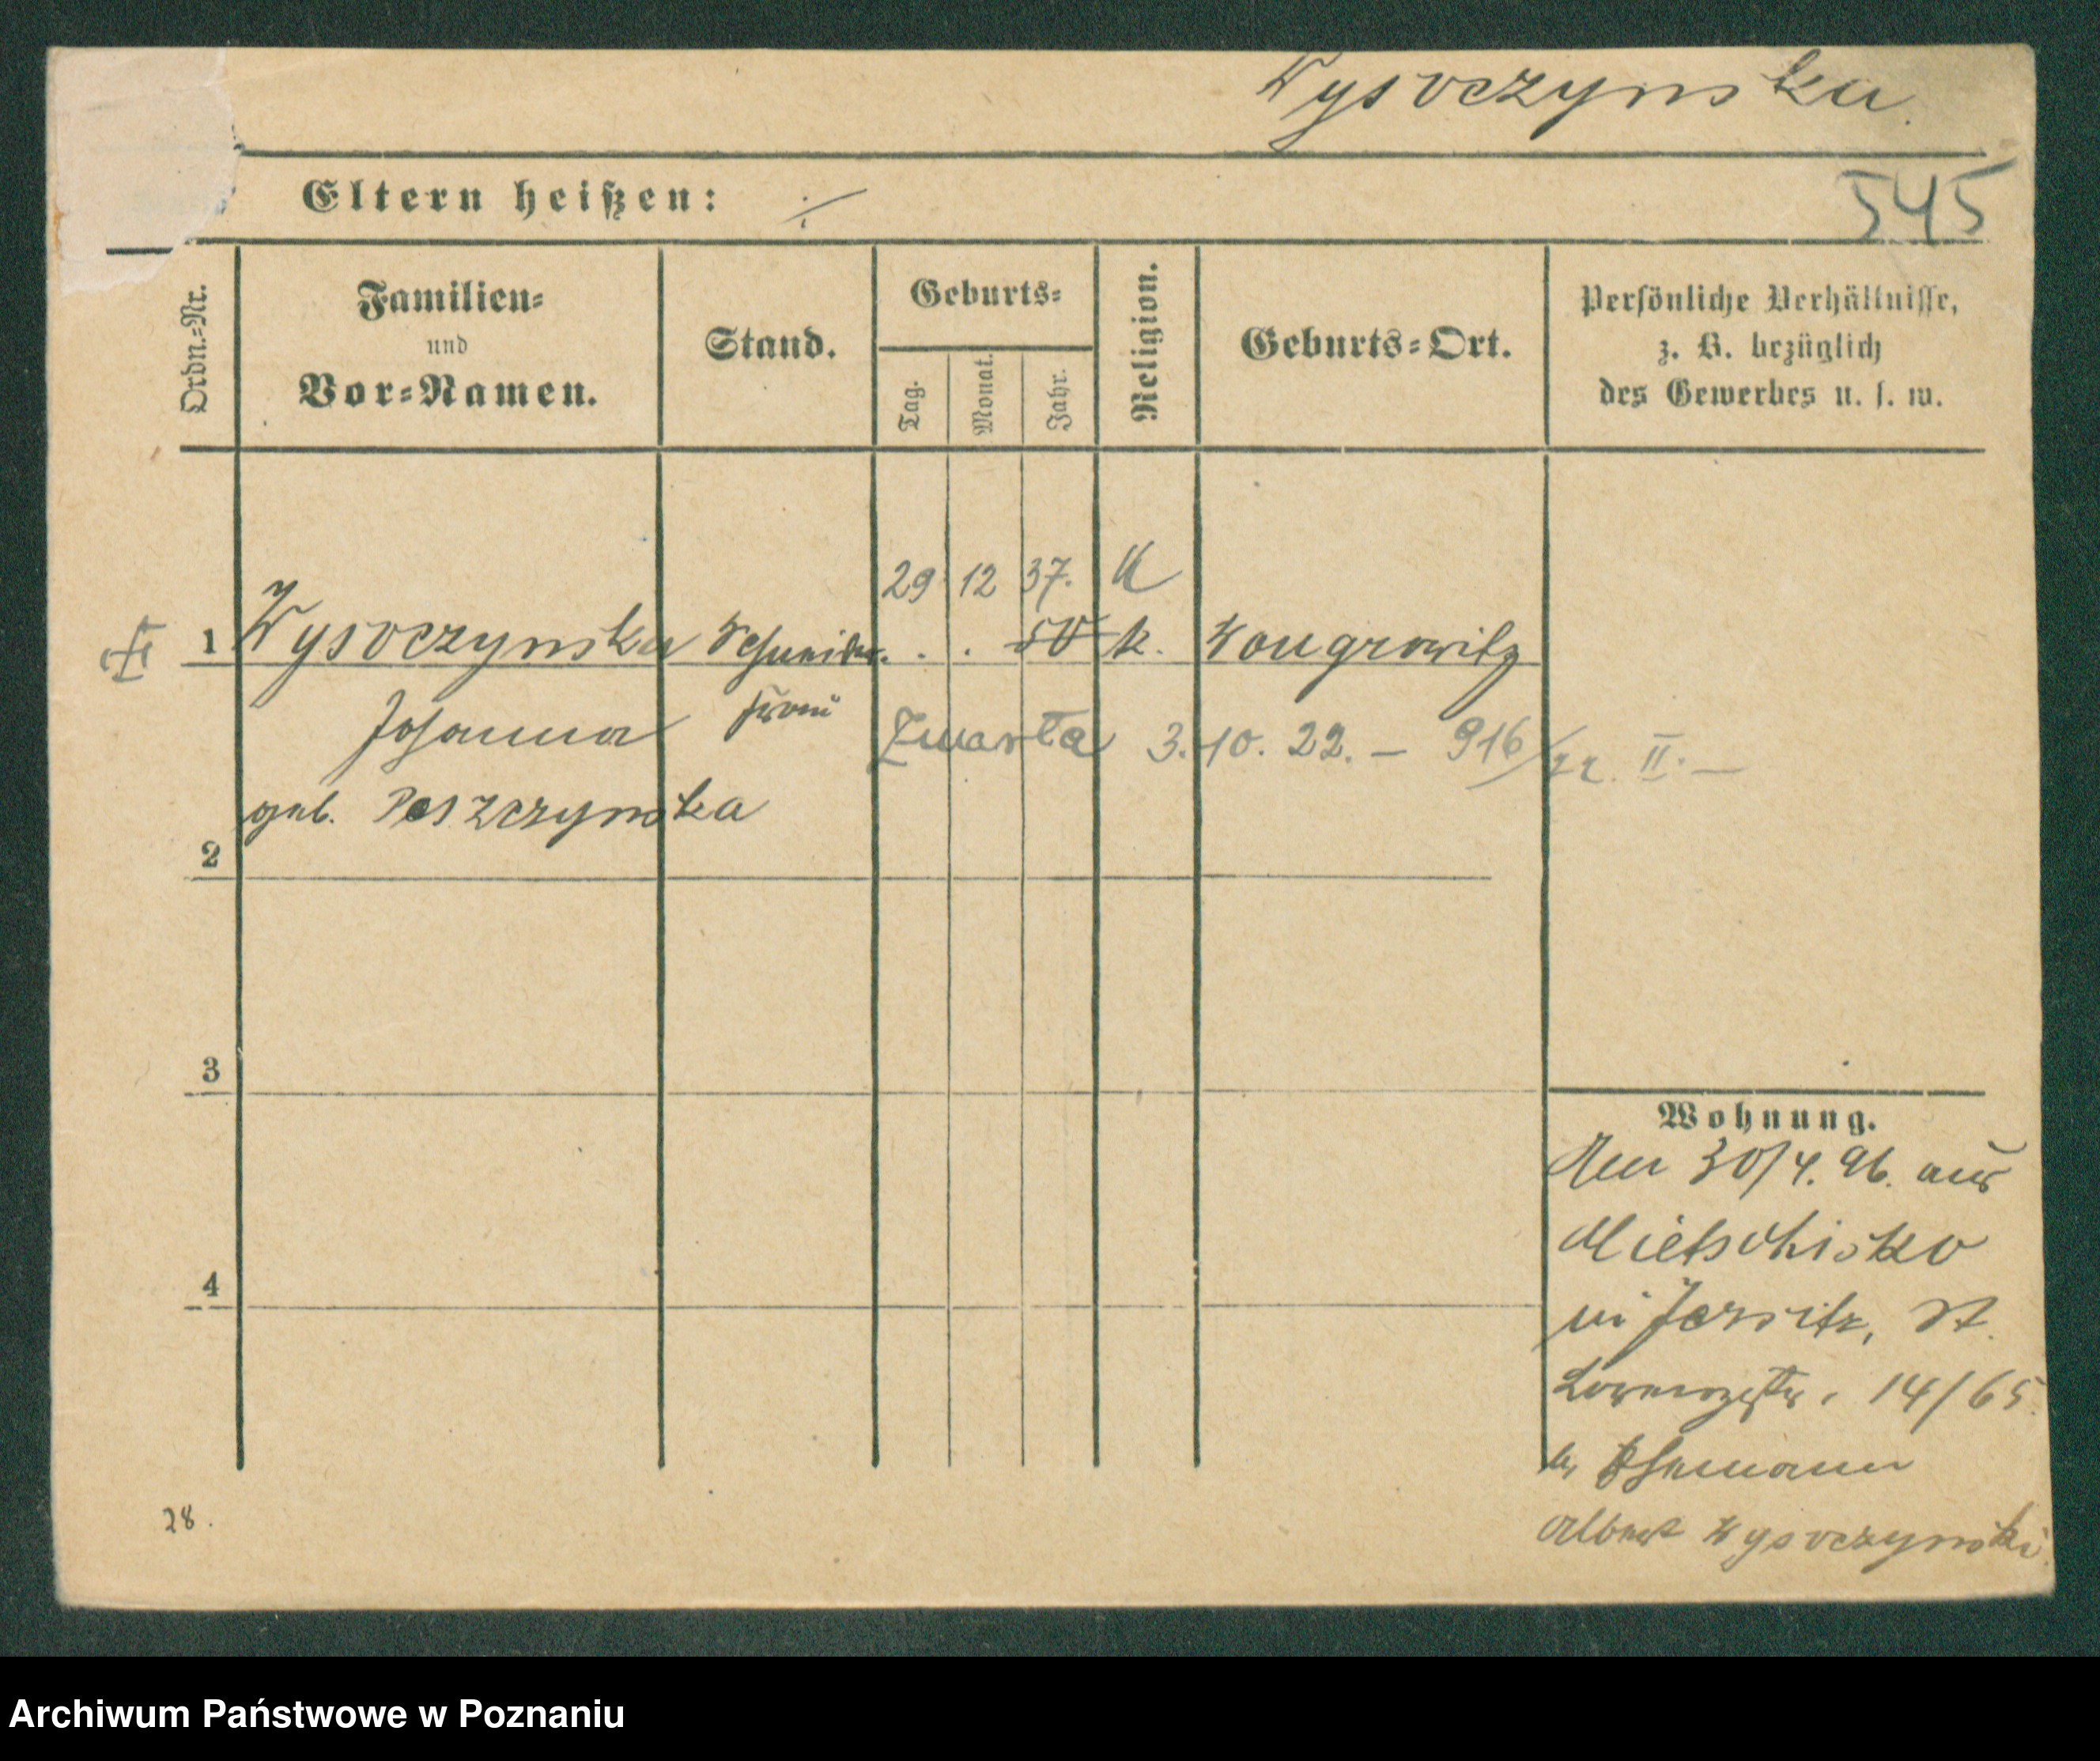 Wysoczynska.
Eltern heißen: ./.
545
Ordn.=Nr.
Familien=
und
Vor=Namen.
Stand.
Geburts=
Tag.
Monat.
Jahr.
Religion.
Geburts=Ort.
Persönliche Verhältnisse,
z. B. bezüglich
des Gewerbes u. s. w.
29 12 37. K
1 Wysoczynska Schneider. . . 50 k. Wongrowitz
Johanna frau
Zmarła 3. 10. 22. – 916/22. II. –
geb. Peszczynska
2
3
4
Wohnung.
Am 30/4. 96. aus
Mietschisko
in Jersitz, St.
14/65.
b. Ehemann
Albert Wysoczynski.
28.
Archiwum Państwowe w Poznaniu